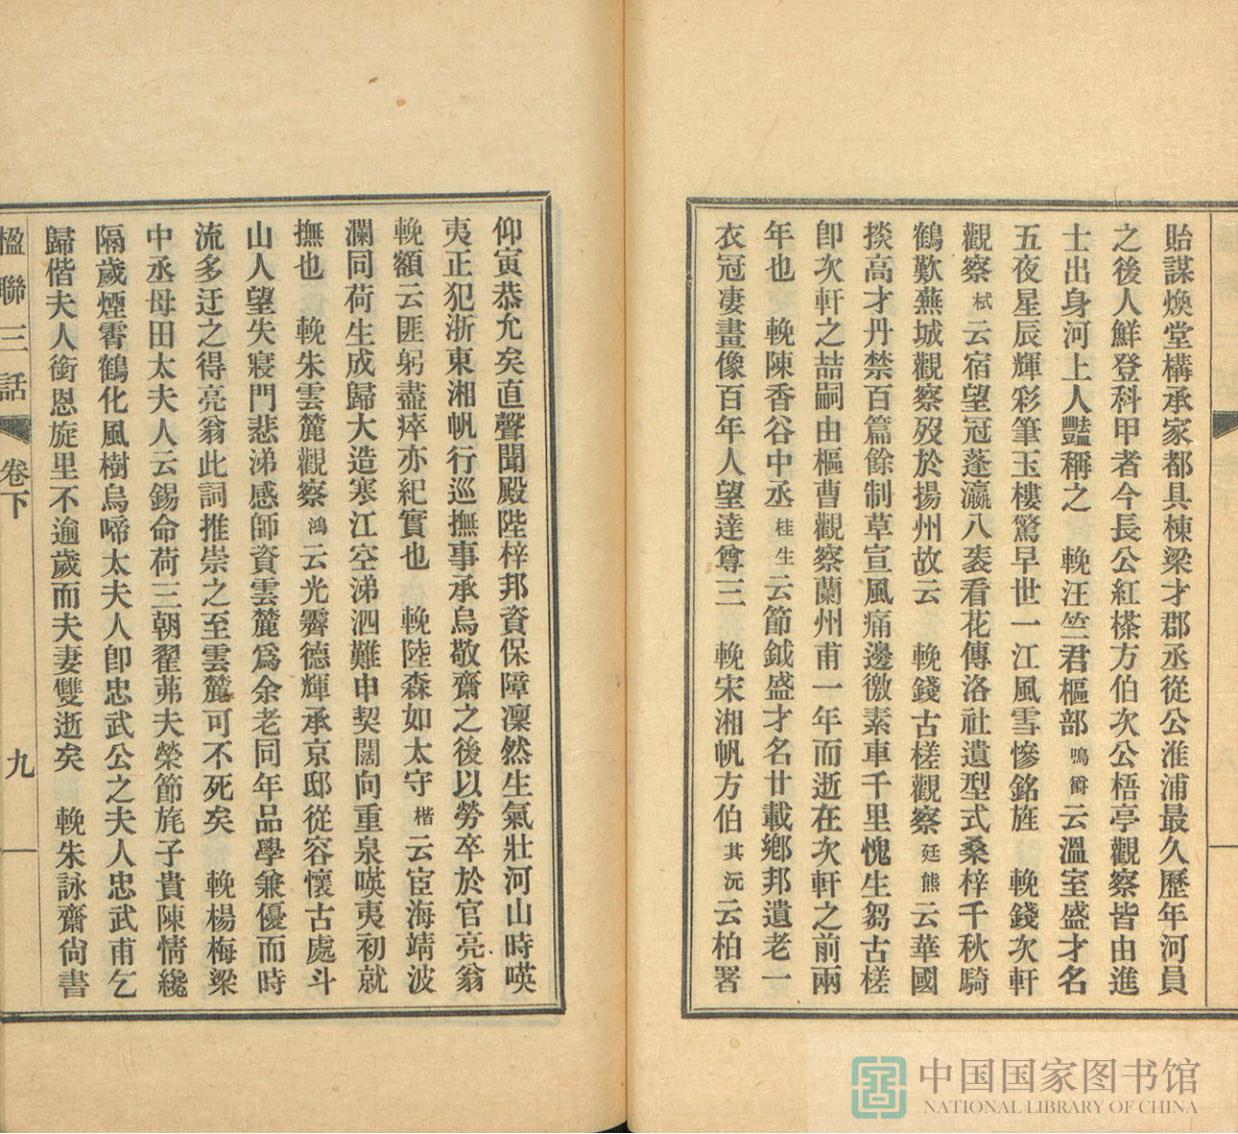 貽謀煥堂構承家都具棟梁才郡丞從公淮浦最久歷年河員
之後人鮮登科甲者今長公紅㯽方伯次公梧亭觀察皆由進
士出身河上人豔稱之　輓汪竺君樞部鳴謙云溫室盛才名
五夜星辰輝彩筆玉樓驚早世一江風雪慘銘旌　輓錢次軒
觀察栻云宿望冠蓬瀛八袠看花傳洛社遺型式桑梓千秋騎
鶴歎蕪城觀察歿於揚州故云　輓錢古槎觀察廷熊云華國
掞高才丹禁百篇餘制草宣風痛邊徼素車千里愧生芻古槎
卽次軒之喆嗣由樞曹觀察蘭州甫一年而逝在次軒之前兩
年也　輓陳香谷中丞桂生云節鉞盛才名廿載鄕邦遺老一
衣冠凄畫像百年人望達尊三　輓宋湘帆方伯其沅云柏署
仰寅恭允矣直聲聞殿陛梓邦資保障凜然生氣壯河山時㗲
夷正犯浙東湘帆行巡撫事承烏敬齋之後以勞卒於官亮翁
輓額云匪躬盡瘁亦紀實也　輓陸森如太守楷云宦海靖波
瀾同荷生成歸大造寒江空涕泗難申契闊向重泉㗲夷初就
撫也　輓朱雲麓觀察鴻云光霽德輝承京邸從容懷古處斗
山人望失寢門悲涕感師資雲麓爲余老同年品學兼優而時
流多迂之得亮翁此詞推崇之至雲麓可不死矣　輓楊梅梁
中丞母田太夫人云錫命荷三朝翟茀夫榮節旄子貴陳情纔
隔歲煙霄鶴化風樹烏啼太夫人卽忠武公之夫人忠武甫乞
歸偕夫人銜恩旋里不逾歲而夫妻雙逝矣　輓朱詠齋尙書
楹聯三話　卷下　九
中国国家图书馆
NATIONAL LIBRARY OF CHINA